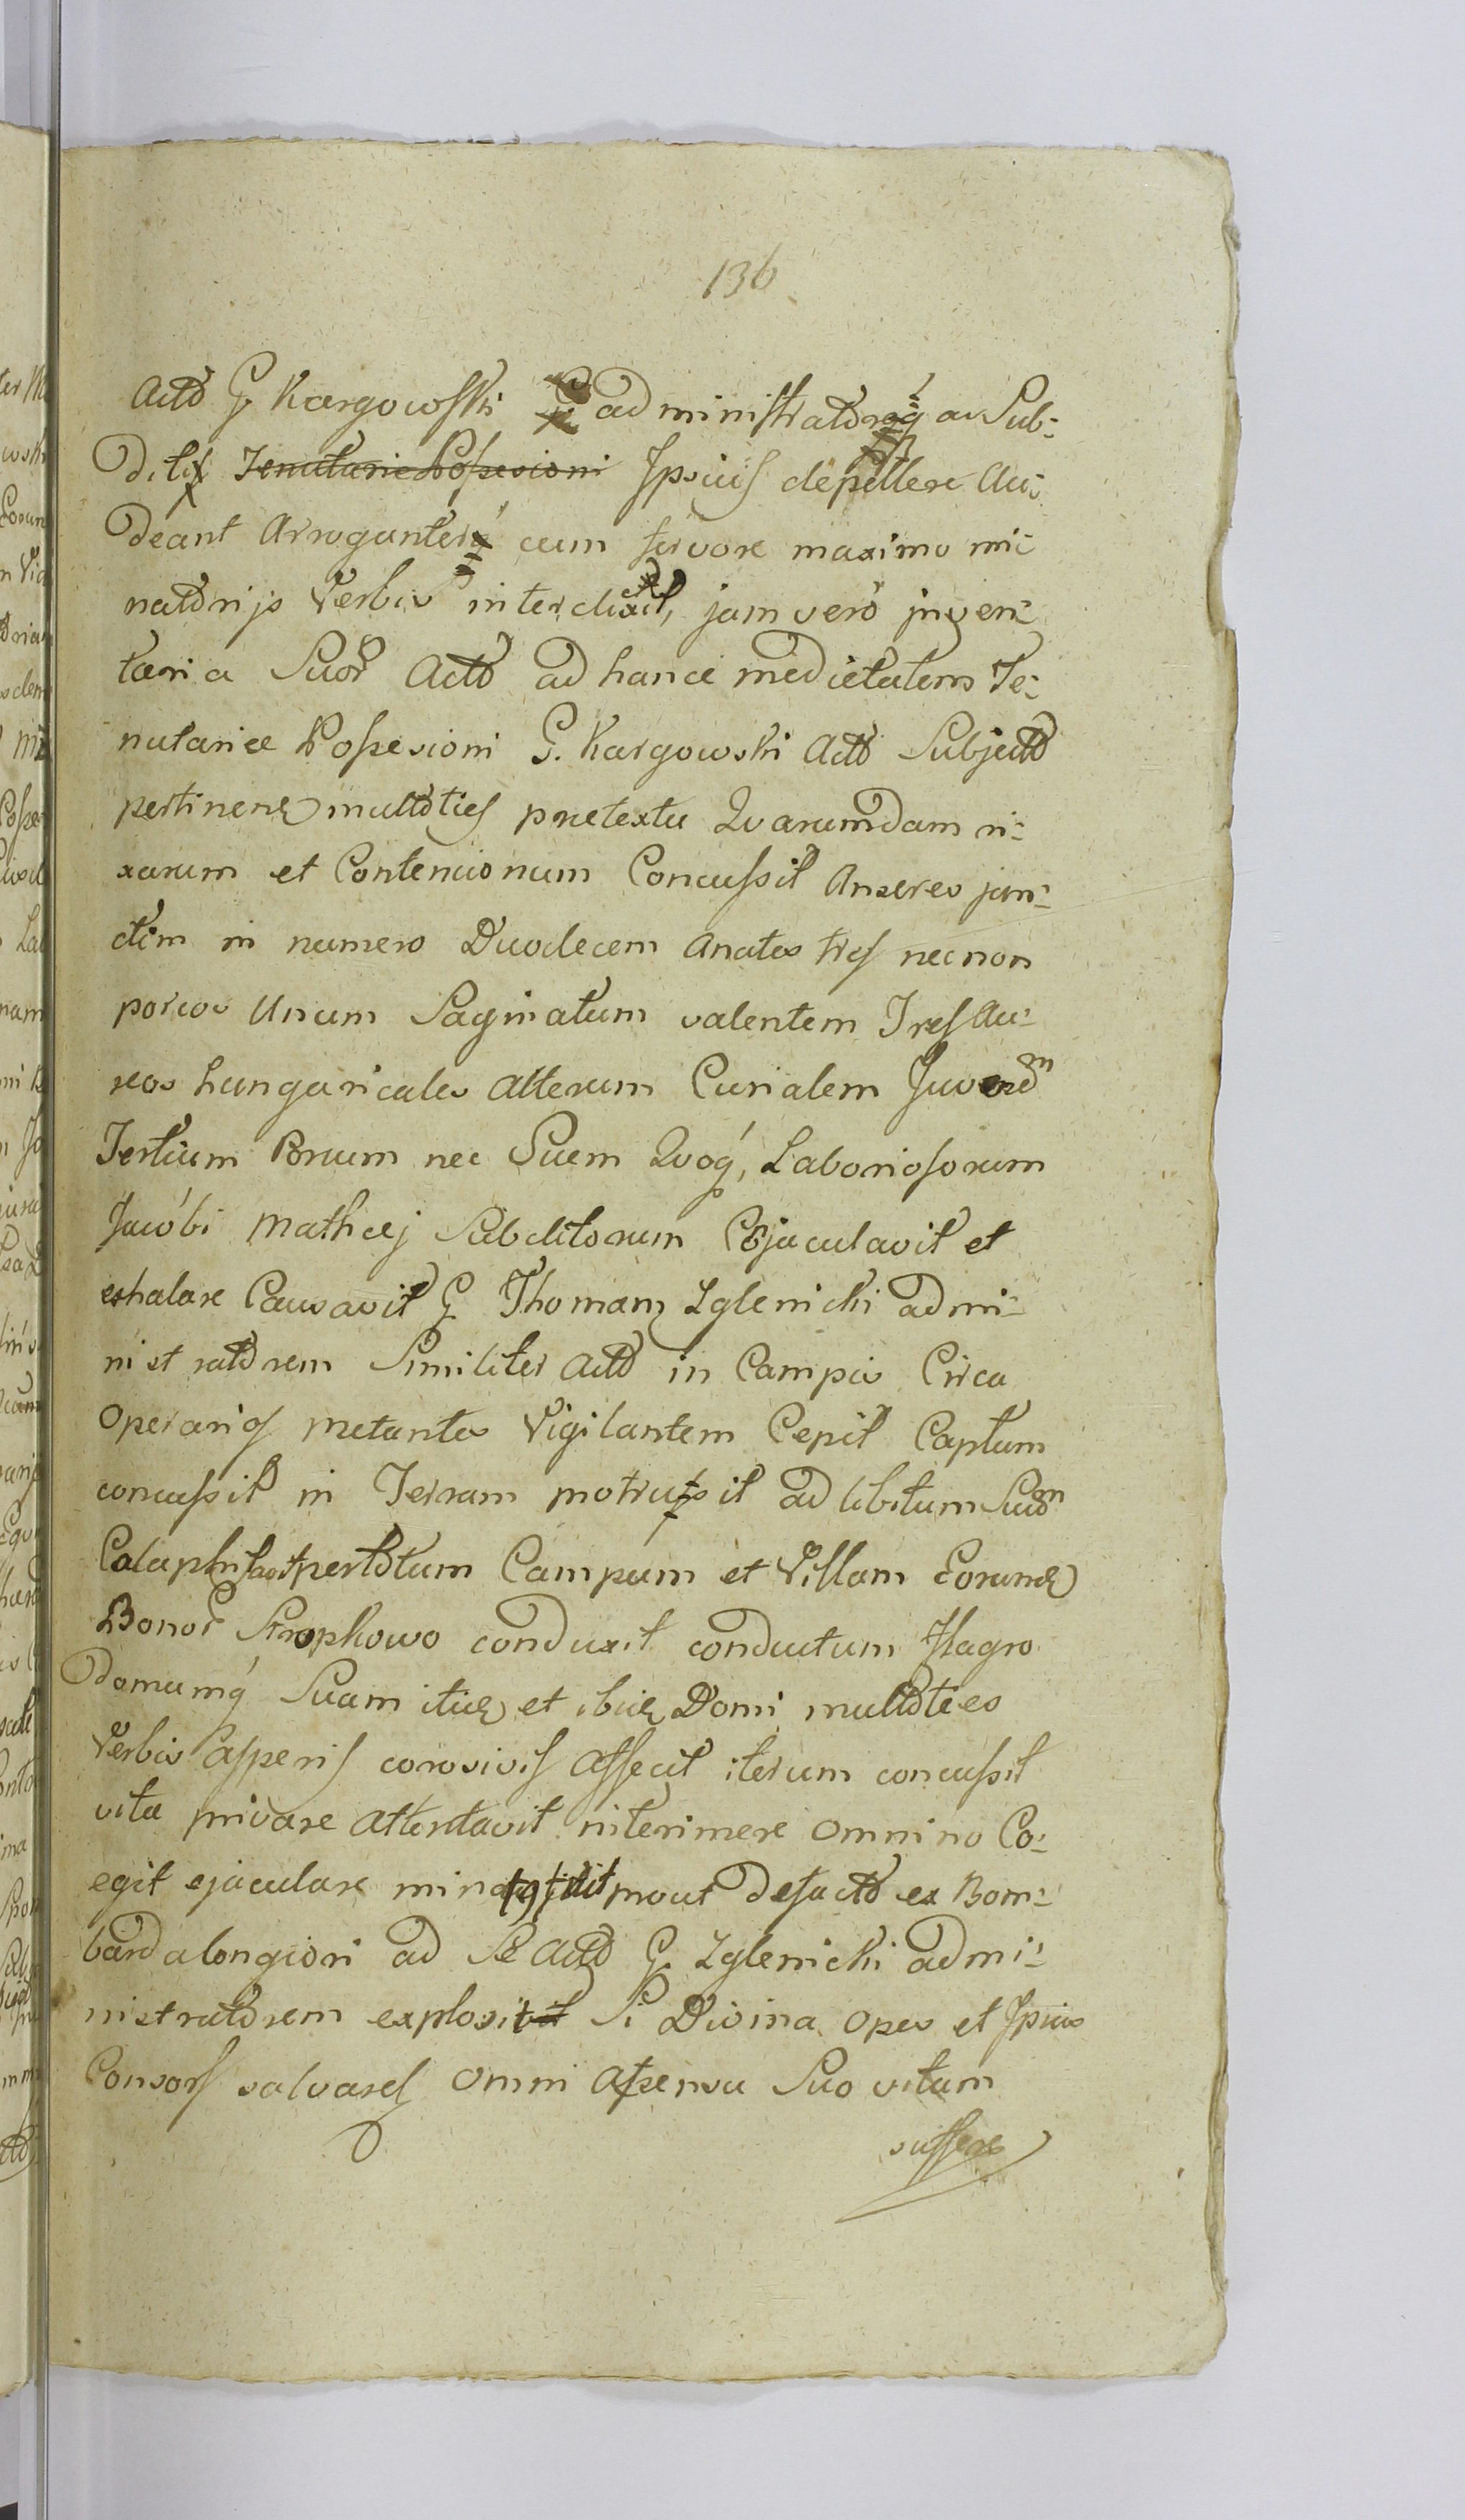 136
Acto G. Kargowski administratorq́ a Sub-
ditis Tenutarie Possesioni Ipsius depellere Au-
deant Arroganter cum fervore maximo mi-
natorijs Verbis interdixit, jam vero inven-
taria Suor Acto ad hance medietatem Te-
nutariæ Possesioni G. Kargowski Acto Subjecto
pertinen multoties pretextu Qvarumdam ri-
xarum et Contencionum Concussit Anseres jun-
ctim in numero Duodecem Anates tres necnon
porcos Unum Saginatum valentem Tres Au-
reos hungaricales Alterum Curialem Juvenem
Tertium nec Suem Qvoq́, Laboriosorum
Jacobi Mathæj Subditorum Ejaculavit et
exhalare Causavit G Thomam Zglenicki admi-
nistratorem Similiter Acto in Campis Circa
Operarios metantes Vigilantem Cepit Captum
concussit in Terram protrusit ad libitum Suum
Calaphisavit per totum Campum et Villam Eorund
Bonor Stropkowo conduxit conductum Flagro
domumq́ Suam itid et ibid Domi multoties
Verbis Asperis corosivis Affecit iterum concussit
vita privare Attentavit interimere Omnino Co-
egit ejaculare prout defacto ex Bom-
barda longiori ad Se Acto G. Zglenicki admi-
nistratorem explosit Si Divina Opes et Ipsius
Consors salvares Omni Assensu Suo vitam
suffere